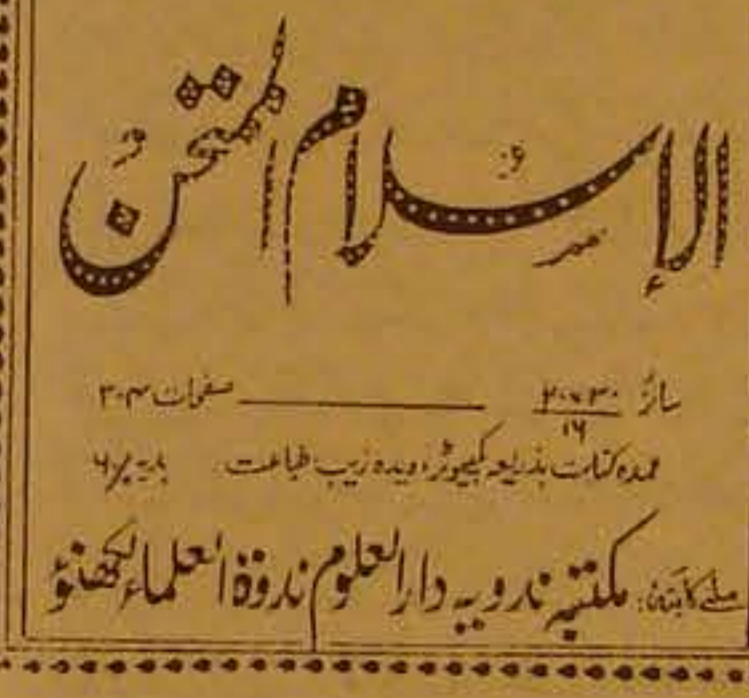 الإسلام الممتحن
سائز ۲۰×۳۰/۱۶ صفحات ۳۰۴
عمدہ کتابت بذریعہ کمپیوٹر، دیدہ زیب طباعت ہدیہ
ملنے کا پتہ: مکتبہ ندویہ دارالعلوم ندوۃ العلماء لکھنؤ